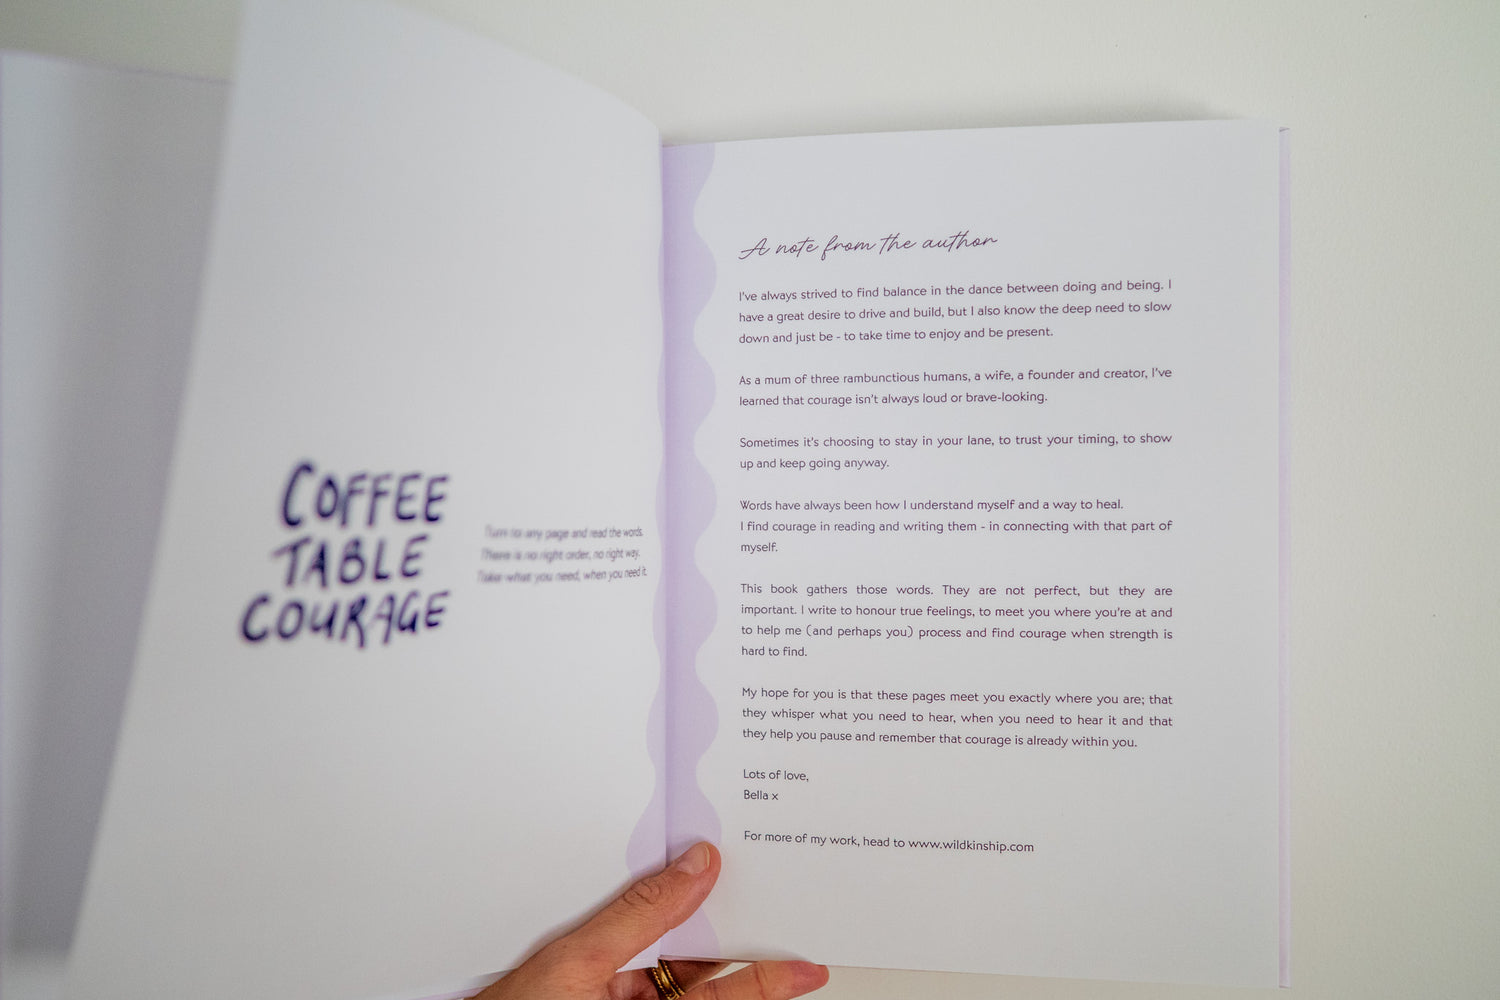 COFFEE
TABLE
COURAGE
Turn to any page and read the words.
There is no right order, no right way.
Take what you need, when you need it.
A note from the author
I've always strived to find balance in the dance between doing and being. I
have a great desire to drive and build, but I also know the deep need to slow
down and just be - to take time to enjoy and be present.
As a mum of three rambunctious humans, a wife, a founder and creator, I've
learned that courage isn't always loud or brave-looking.
Sometimes it's choosing to stay in your lane, to trust your timing, to show
up and keep going anyway.
Words have always been how I understand myself and a way to heal.
I find courage in reading and writing them - in connecting with that part of
myself.
This book gathers those words. They are not perfect, but they are
important. I write to honour true feelings, to meet you where you're at and
to help me (and perhaps you) process and find courage when strength is
hard to find.
My hope for you is that these pages meet you exactly where you are; that
they whisper what you need to hear, when you need to hear it and that
they help you pause and remember that courage is already within you.
Lots of love,
Bella x
For more of my work, head to www.wildkinship.com